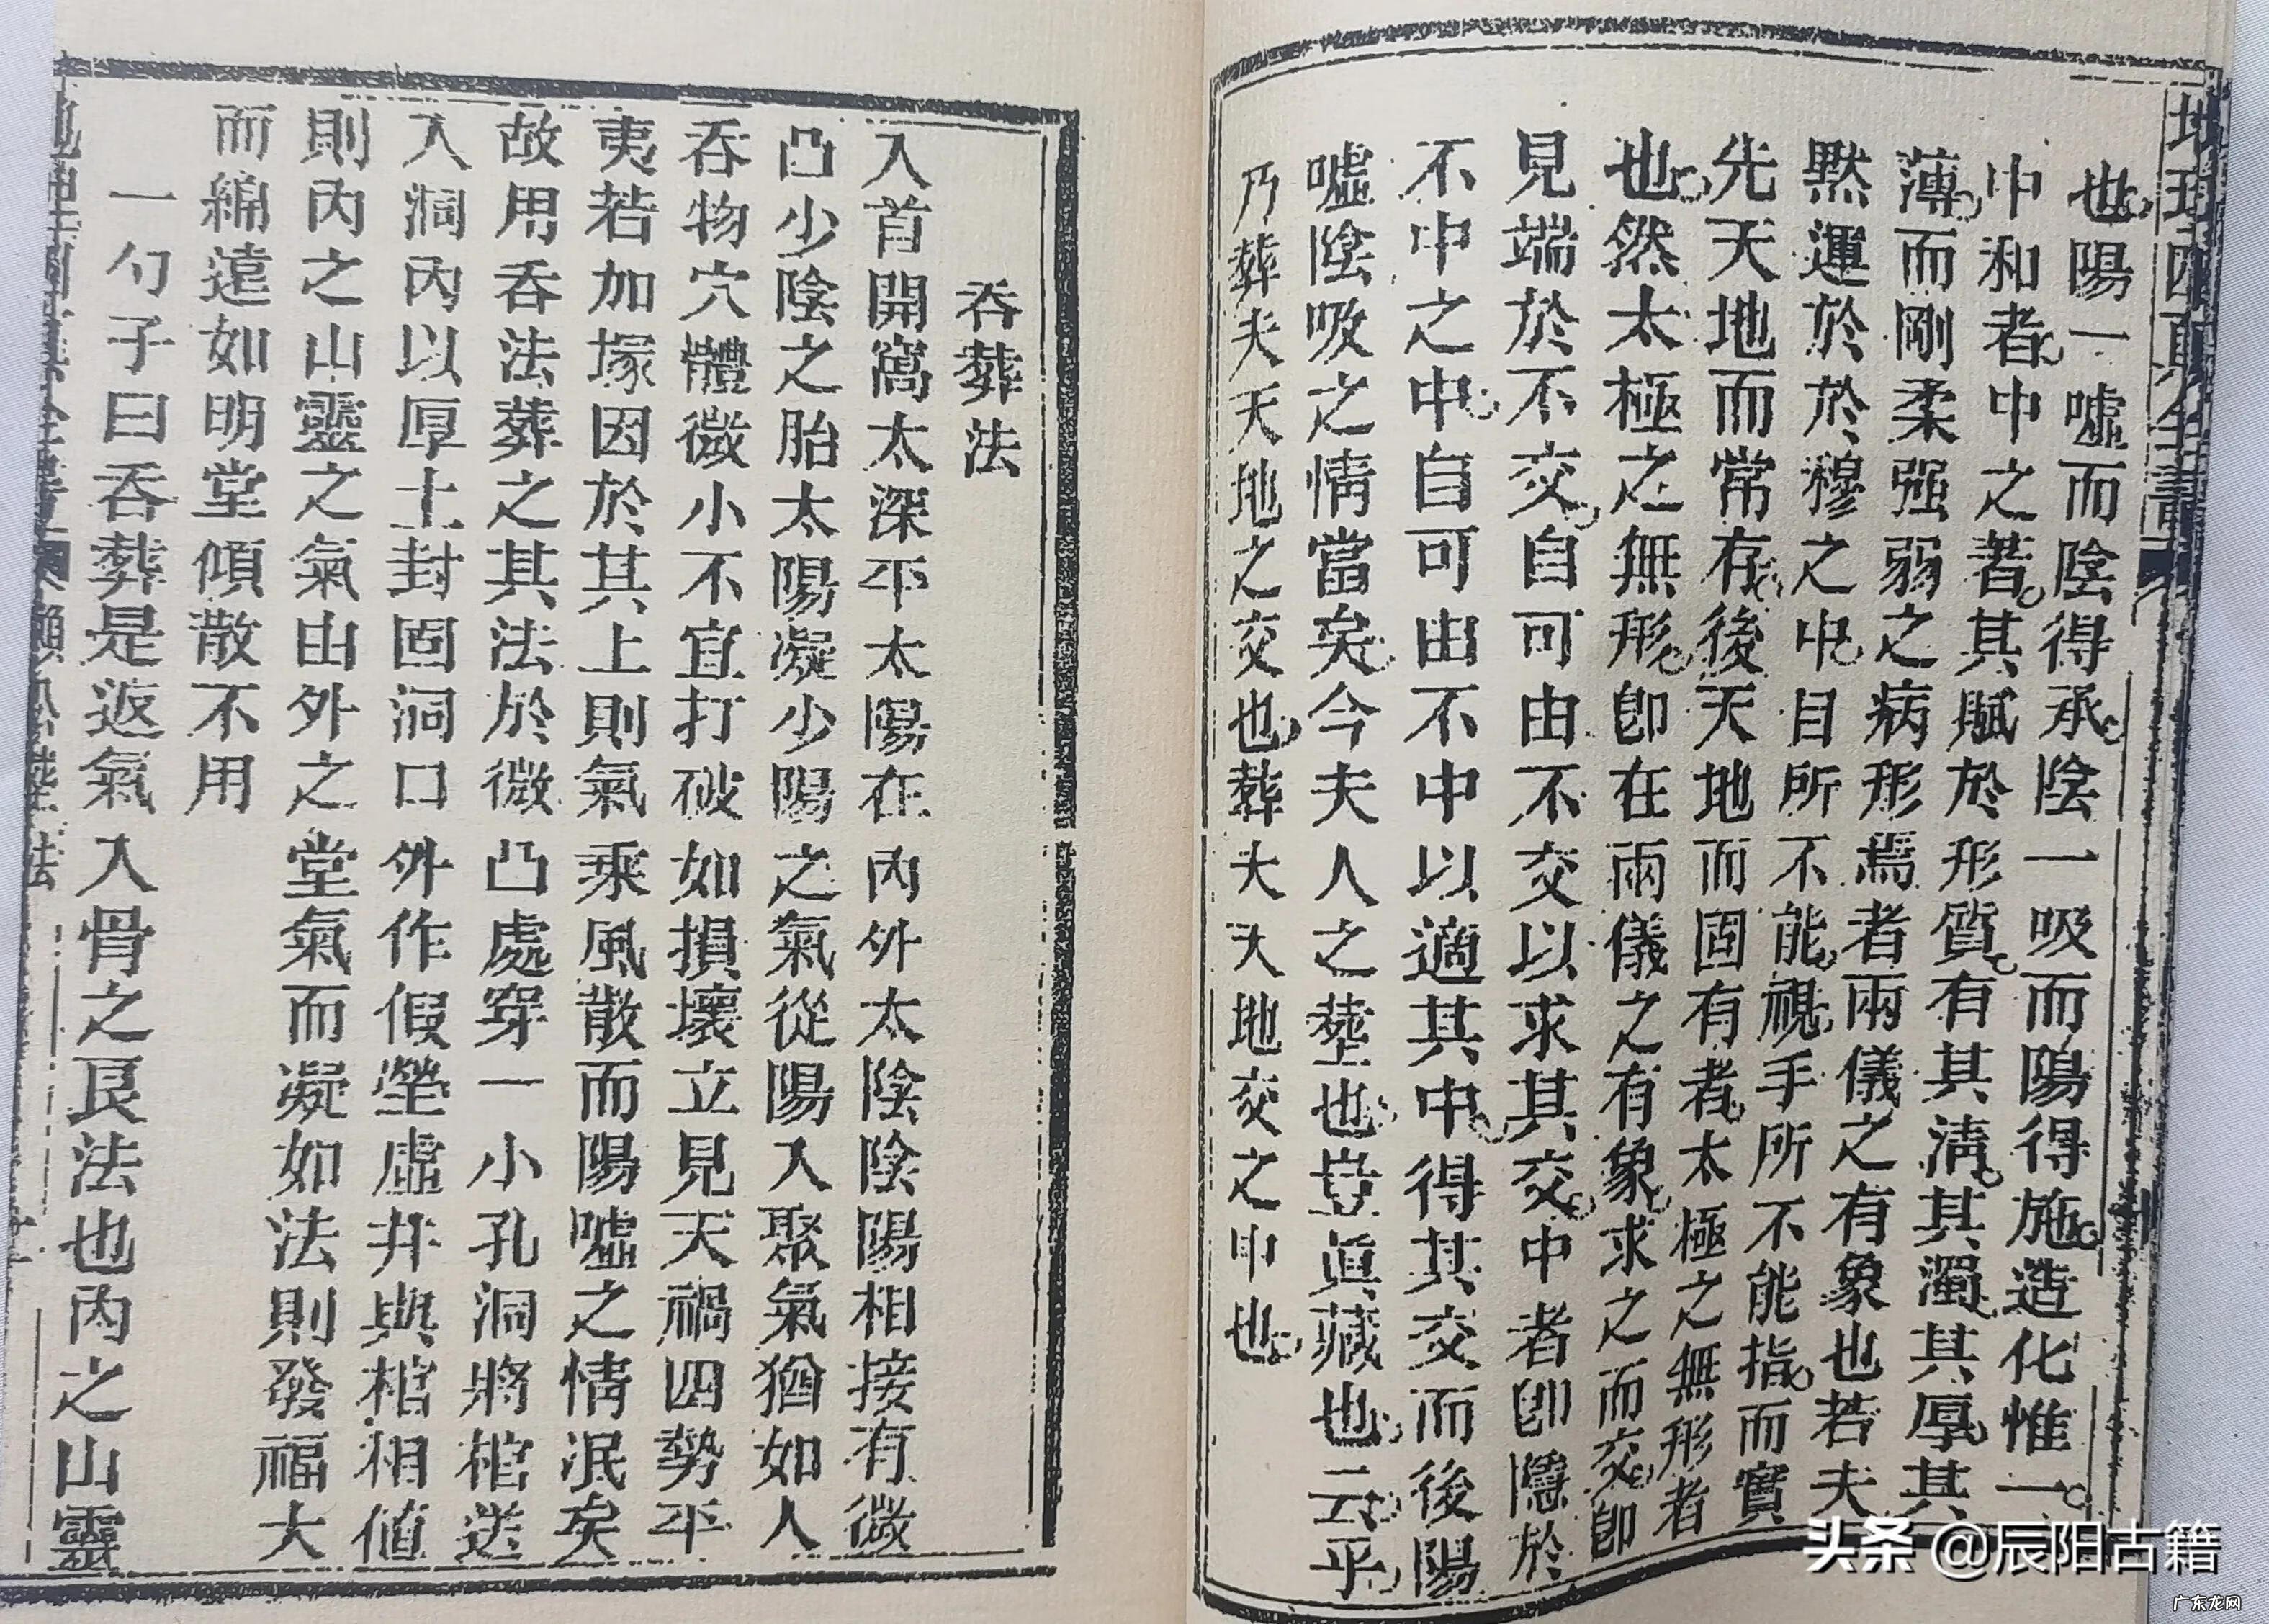 也陽一噓而陰得承陰一吸而陽得施造化惟一
中和者中之著其賦於形質有其淸其濁其厚其
薄而剛柔强弱之病形焉者兩儀之有象也若夫
默運於於穆之中目所不能視手所不能指而實
先天地而常存後天地而固有者太極之無形者
也然太極之無形卽在兩儀之有象求之而交卽
見端於不交自可由不交以求其交中者卽隱於
不中之中自可由不中以適其中得其交而後陽
噓陰吸之情當矣今夫人之葬也豈眞藏也云乎
乃葬夫天地之交也葬夫天地交之中也
吞葬法
入首開窩太深平太陽在內外太陰陰陽相接有微
凸少陰之胎太陽凝少陽之氣從陽入聚氣猶如人
吞物穴體微小不宜打破如損壞立見天禍四勢平
夷若加塚因於其上則氣乘風散而陽噓之情泯矣
故用吞法葬之其法於微凸處穿一小孔洞將棺送
入洞內以厚土封固洞口外作假塋虛井與棺相値
則內之山靈之氣由外之堂氣而凝如法則發福大
而綿遠如明堂傾散不用
一勺子曰吞葬是返氣入骨之良法也內之山靈
头条 @辰阳古籍
广东龙网